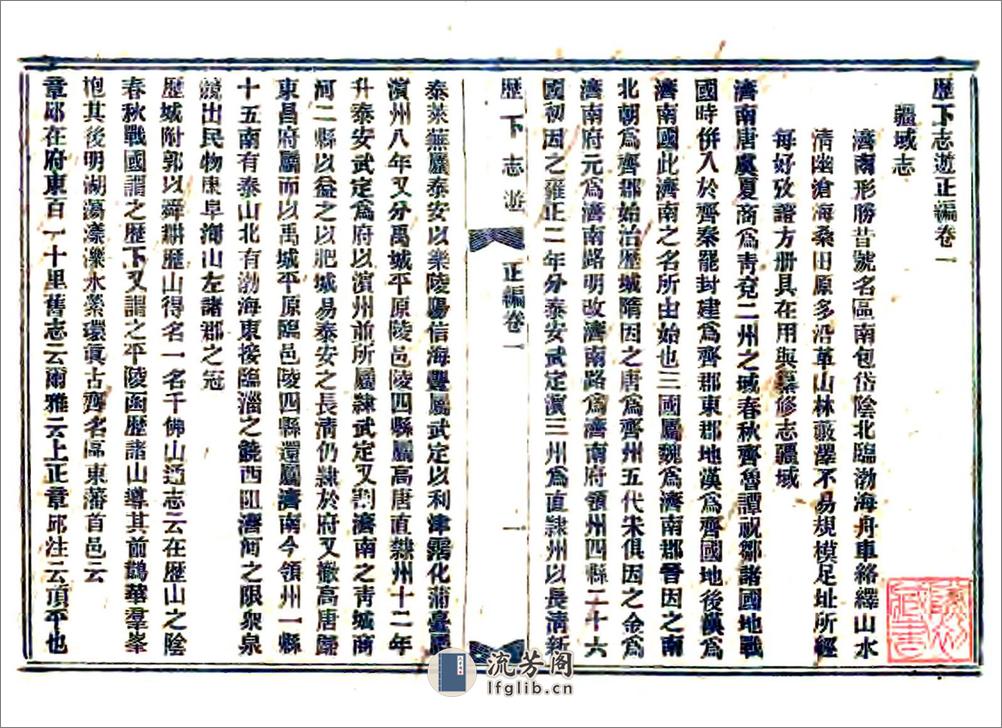 歷下志遊正編卷一
疆域志
濟南形勝昔號名區南包岱陰北臨渤海舟車絡繹山水
清幽滄海桑田原多沿革山林藪澤不易規模足址所經
每好攷證方册具在用與纂修志疆域
濟南唐虞夏商爲靑兗二州之域春秋齊魯譚祝鄒諸國地戰
國時併入於齊秦罷封建爲齊郡東郡地漢爲齊國地後漢爲
濟南國此濟南之名所由始也三國屬魏爲濟南郡晉因之南
北朝爲齊郡始治歷城隋因之唐爲齊州五代宋俱因之金爲
濟南府元爲濟南路明改濟南路爲濟南府領州四縣二十六
國初因之雍正二年分泰安武定濵三州爲直隸州以長淸新
歷下志遊 正編卷一 一
泰萊蕪屬泰安以樂陵陽信海豐屬武定以利津霑化蒲臺屬
濵州八年又分禹城平原陵邑陵四縣屬高唐直隸州十二年
升泰安武定爲府以濵州前所屬隸武定又割濟南之靑城商
河二縣以益之以肥城易泰安之長淸仍隸於府又撤高唐歸
東昌府屬而以禹城平原臨邑陵四縣還屬濟南今領州一縣
十五南有泰山北有渤海東接臨淄之饒西阻濟河之限衆泉
競出民物康阜洵山左諸郡之冠
歷城附郭以舜耕歷山得名一名千佛山通志云在歷山之陰
春秋戰國謂之歷下又謂之平陵函歷諸山導其前鵲華羣峯
抱其後明湖蕩漾濼水縈環眞古齊名區東藩首邑云
章邱在府東百一十里舊志云爾雅云上正章邱注云頂平也
流芳阁
lfglib.cn